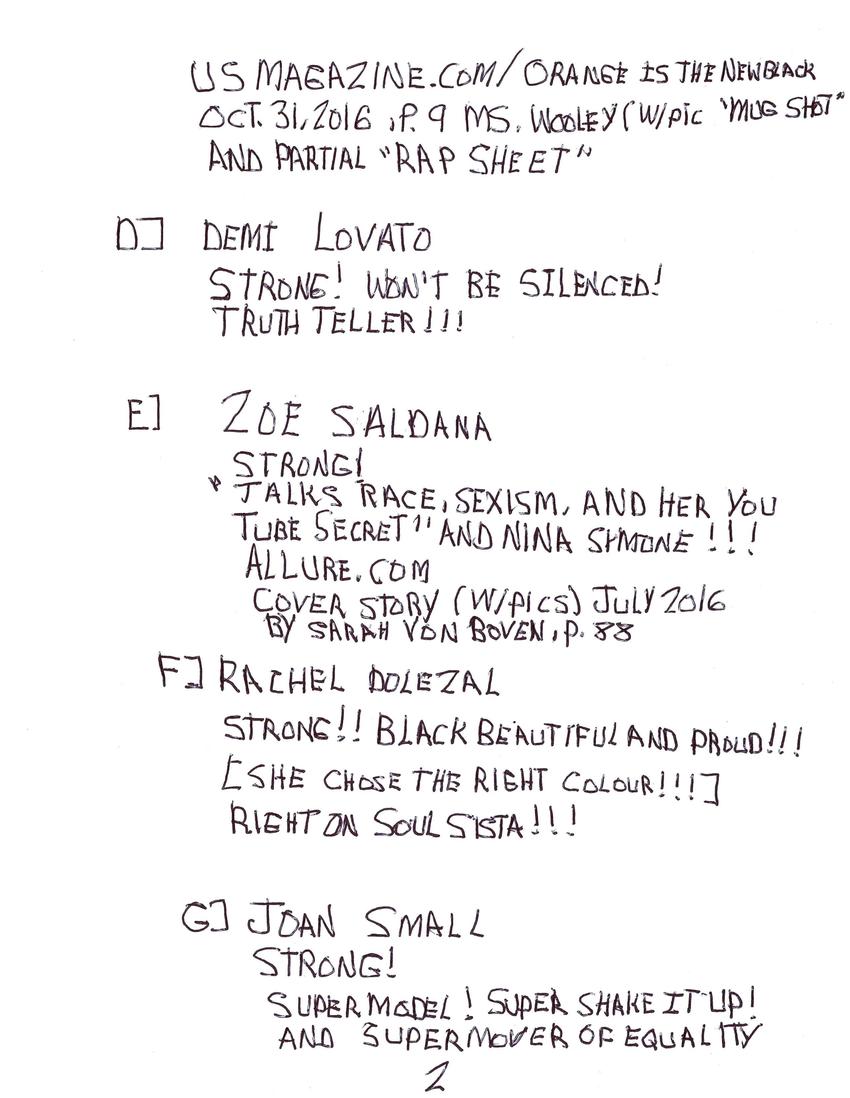 US MAGAZINE.COM/ORANGE IS THE NEW BLACK
OCT. 31, 2016, P. 9 MS. WOOLEY (W/pic "MUG SHOT"
AND PARTIAL "RAP SHEET"
D] DEMI LOVATO
STRONG! WON'T BE SILENCED!
TRUTH TELLER!!!
E] ZOE SALDANA
STRONG!
"TALKS RACE, SEXISM, AND HER YOU
TUBE SECRET" AND NINA SIMONE!!!
ALLURE.COM
COVER STORY (W/pics) JULY 2016
BY SARAH VON BOVEN, P. 88
F] RACHEL DOLEZAL
STRONG!! BLACK BEAUTIFUL AND PROUD!!!
[SHE CHOSE THE RIGHT COLOUR!!!]
RIGHT ON SOUL SISTA!!!
G] JOAN SMALL
STRONG!
SUPER MODEL! SUPER SHAKE IT UP!
AND SUPER MOVER OF EQUALITY
2